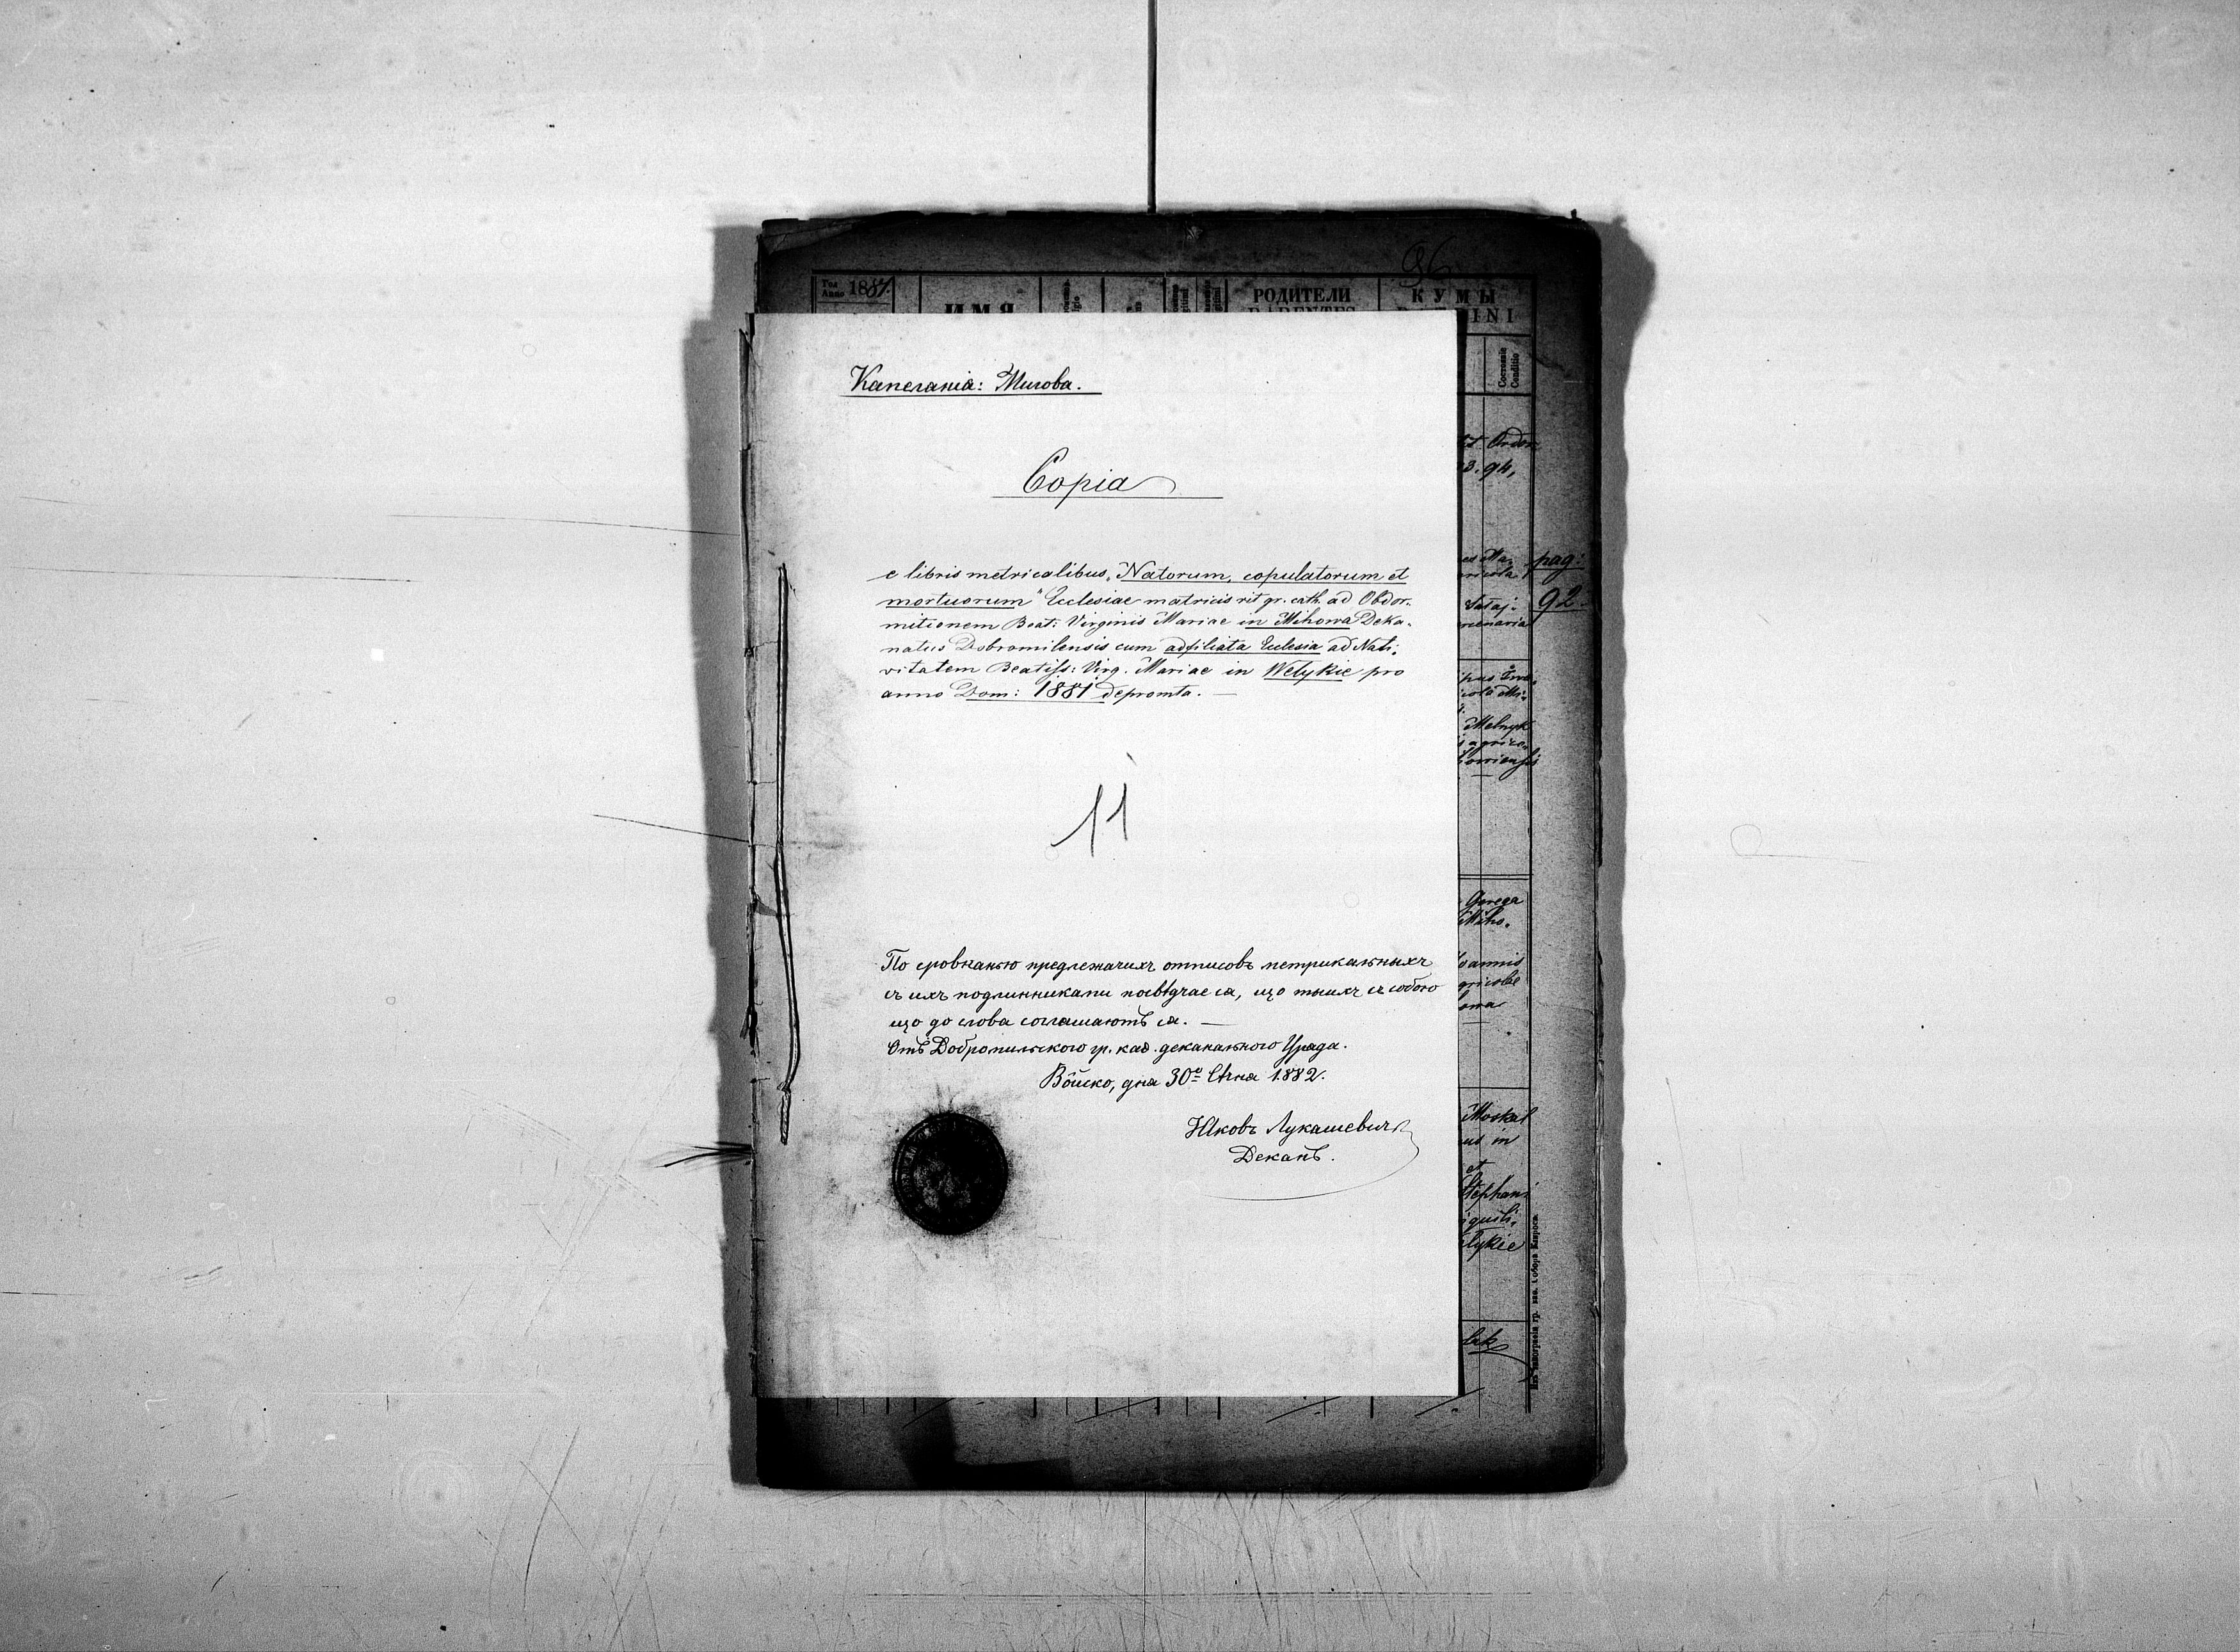 96
Anno 1881.
ИМЯ
РОДИТЕЛИ
КУМЫ
PARENTES
INI
Состояніе
Conditio
Капеланія: Мигова.
Copia
e libris metricalibus „Natorum, copulatorum et
mortuorum“ Ecclesiae matricis rit. gr. cath. ad Obdor-
mitionem Beat: Virginis Mariae in Mihowa Deka-
natus Dobromilensis cum adfiliata Ecclesia ad Nati-
vitatem Beatiss: Virg. Mariae in Welykie pro
anno Dom: 1881 depromta. —
11
По сровнанью предлежачихъ отписовъ метрикальныхъ
съ ихъ подлинниками посвѣдчае ся, що тыихъ съ собою
що до слова соглашаютъ ся. —
Отъ Добромильского гр. каѳ. деканального Уряда.
Войско, дня 30º Сѣчня 1882.
Яковъ Лукашевичъ
Деканъ.
3. 94,
pag:
92.
Melnyk
Gerega
Miho.
Moskal
us in
et
Stephani
lykie